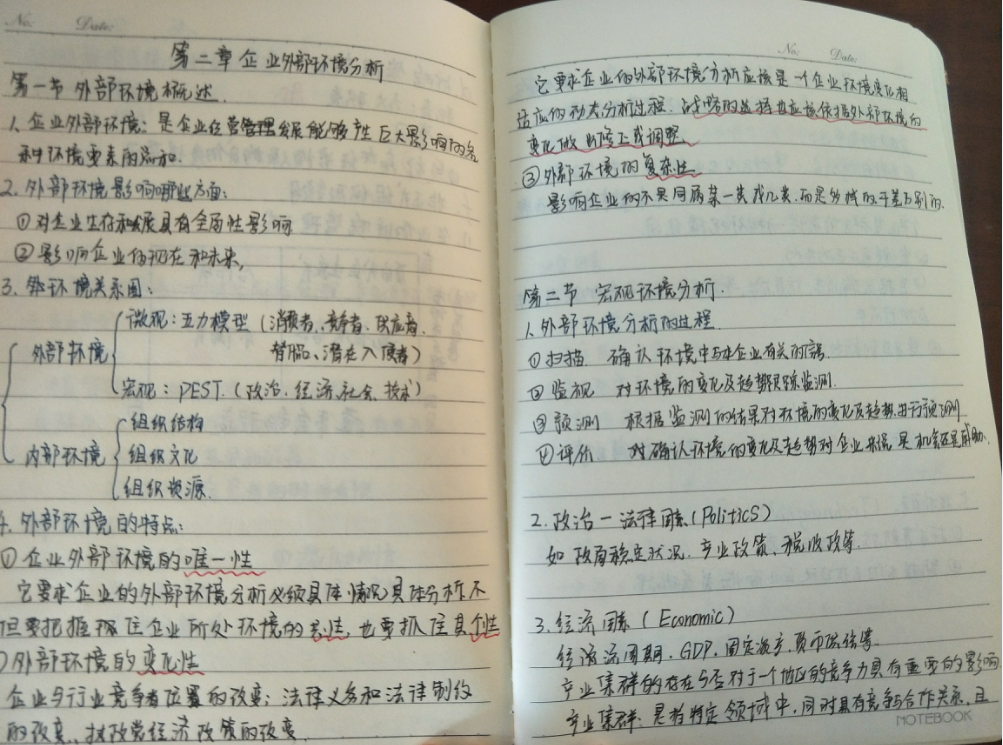 No. Date:
第二章 企业外部环境分析
第一节 外部环境概述.
1. 企业外部环境: 是企业经营管理发展能够产生巨大影响的各
种环境要素的总和.
2. 外部环境影响哪些方面:
①对企业生存和发展具有全局性影响
②影响企业的现在和未来,
3. 环境关系图:
微观: 五力模型 (消费者、竞争者、供应者、
外部环境
替代品、潜在入侵者)
宏观: PEST. (政治、经济、社会、技术)
组织结构
内部环境 组织文化
组织资源.
4. 外部环境的特点:
① 企业外部环境的唯一性
它要求企业的外部环境分析必须具体情况具体分析.不
但要把握住企业所处环境的共性, 也要抓住其个性
外部环境的变化性
企业与行业竞争者位置的改变; 法律义务和法律制约
的改变、执政党经济政策的改变
No. Date:
它要求企业的外部环境分析应该是一个企业环境变化相
适应的动态分析过程. 战略的选择也应该依据外部环境的
变化做出修正或调整
③外部环境的复杂性
影响企业的不是同属某一类或几类.而是分域的千差万别的.
第二节 宏观环境分析.
1. 外部环境分析的过程
① 扫描. 确认环境中与本企业有关的
② 监视 对环境的变化及趋势跟踪监测.
③ 预测 根据监测的结果对环境的变化及趋势进行预测
④ 评价 对确认环境的变化及趋势对企业来说是机会还是威胁.
2. 政治一法律因素 (Politics)
如 政局稳定状况、产业政策、税收政策.
3. 经济因素 (Economic)
经济周期、GDP、固定资产、货币
产业集群的存在与否对于一个地区的竞争力具有重要的影响
产业集群: 是指特定领域中, 同时具有竞争与合作关系, 且
NOTEBOOK